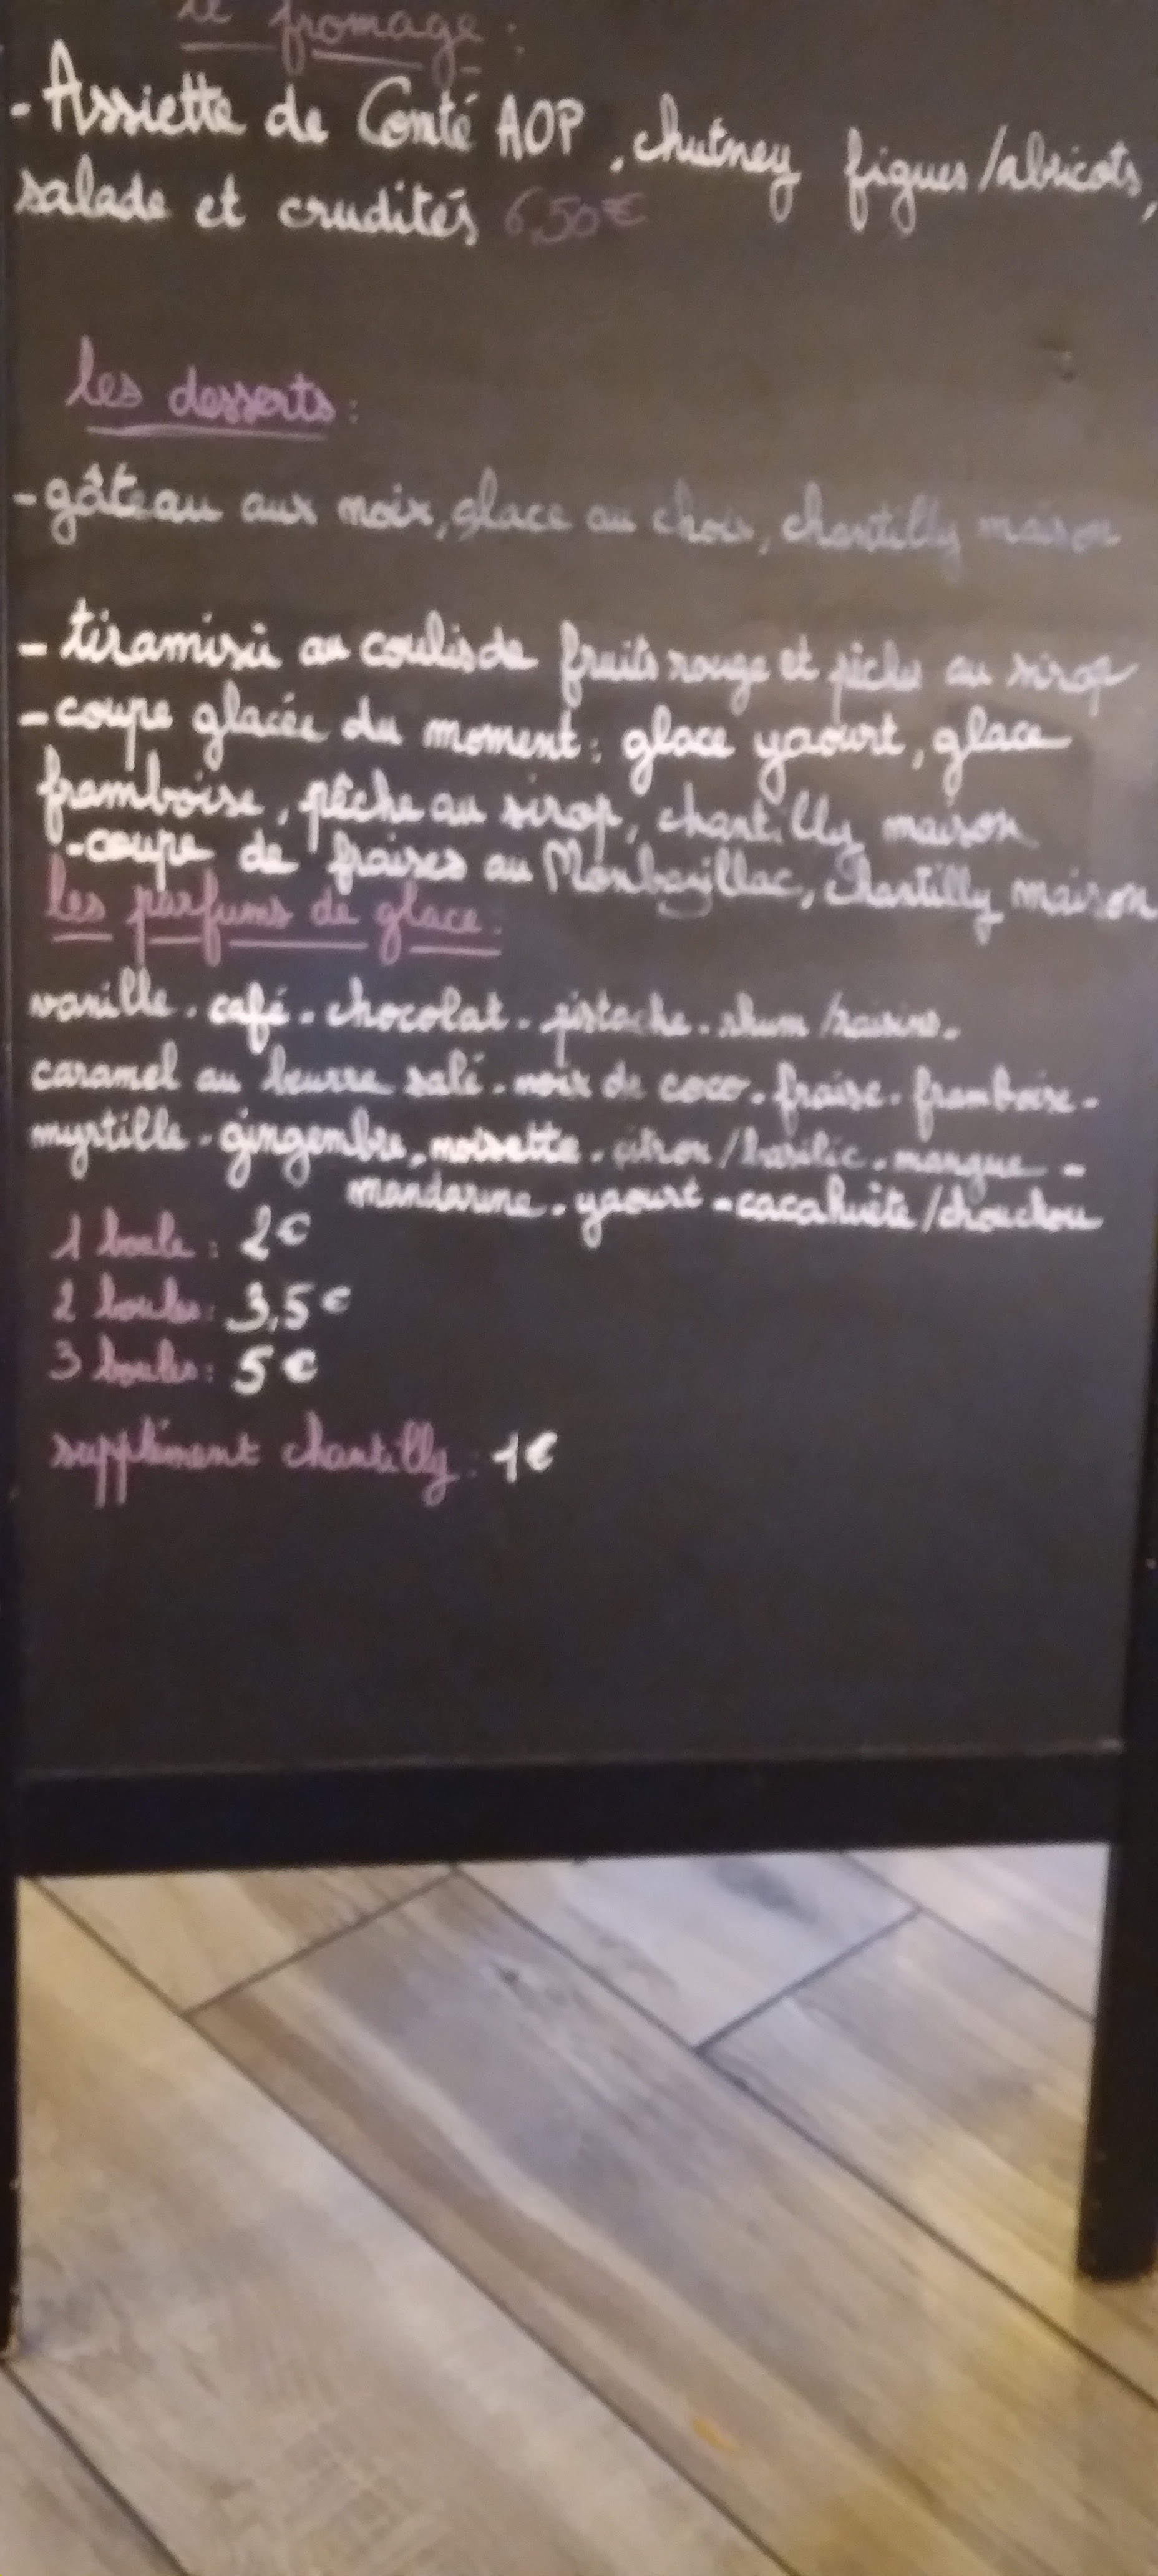 le fromage :
- Assiette de Comté AOP, chutney figues/abricots,
salade et crudités 6,50€
les desserts :
- gâteau aux noix, glace au choix, chantilly maison
- tiramisù au coulis de fruits rouge et pêche au sirop
- coupe glacée du moment : glace yaourt, glace
framboise, pêche au sirop, chantilly maison
- coupe de fraises au Monbazillac, chantilly maison
les parfums de glace :
vanille - café - chocolat - pistache - rhum/raisins -
caramel au beurre salé - noix de coco - fraise - framboise -
myrtille - gingembre - noisette - citron/basilic - mangue -
mandarine - yaourt - cacahuète/chouchou
1 boule : 2€
2 boules : 3,5€
3 boules : 5€
supplément chantilly : 1€